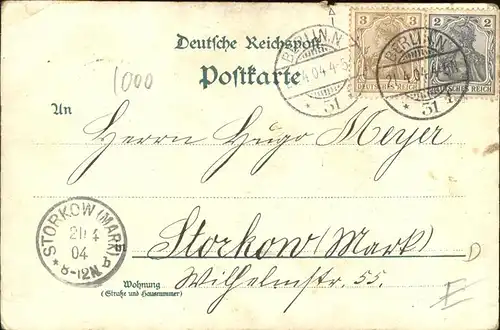 Deutsche Reichspost
Postkarte
1000
3 3
DEUTSCHES REICH
2 2
DEUTSCHES REICH
BERLIN.N.
4.04.4-5
* 31
BERLIN.N.
4.04
* 31
An
Herrn Hugo Meyer
Storkow (Mark)
Wilhelmstr. 55.
Wohnung
(Straße und Hausnummer)
STORKOW (MARK)
4
04
8-12N
E